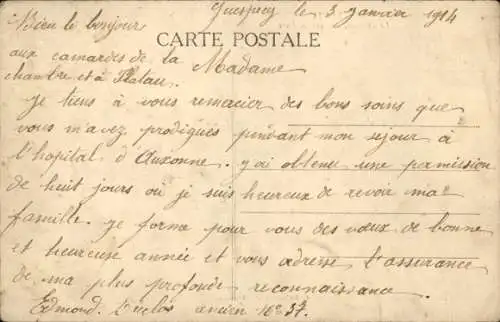 le 3 janvier 1914
Bien le bonjour
aux camardes de la
chambre et à
CARTE POSTALE
Madame
je tiens à vous remacier des bons soins que
vous m'avez prodigués pendant mon sejour à
l'hopital d'Auxonne. j'ai obtenu une permission
de huit jours où je suis heureux de revoir ma
famille. je forme pour vous des vœux de bonne
et heureuse année et vous adresse l'assurance
de ma plus profonde reconnaissance.
Edmond ancien